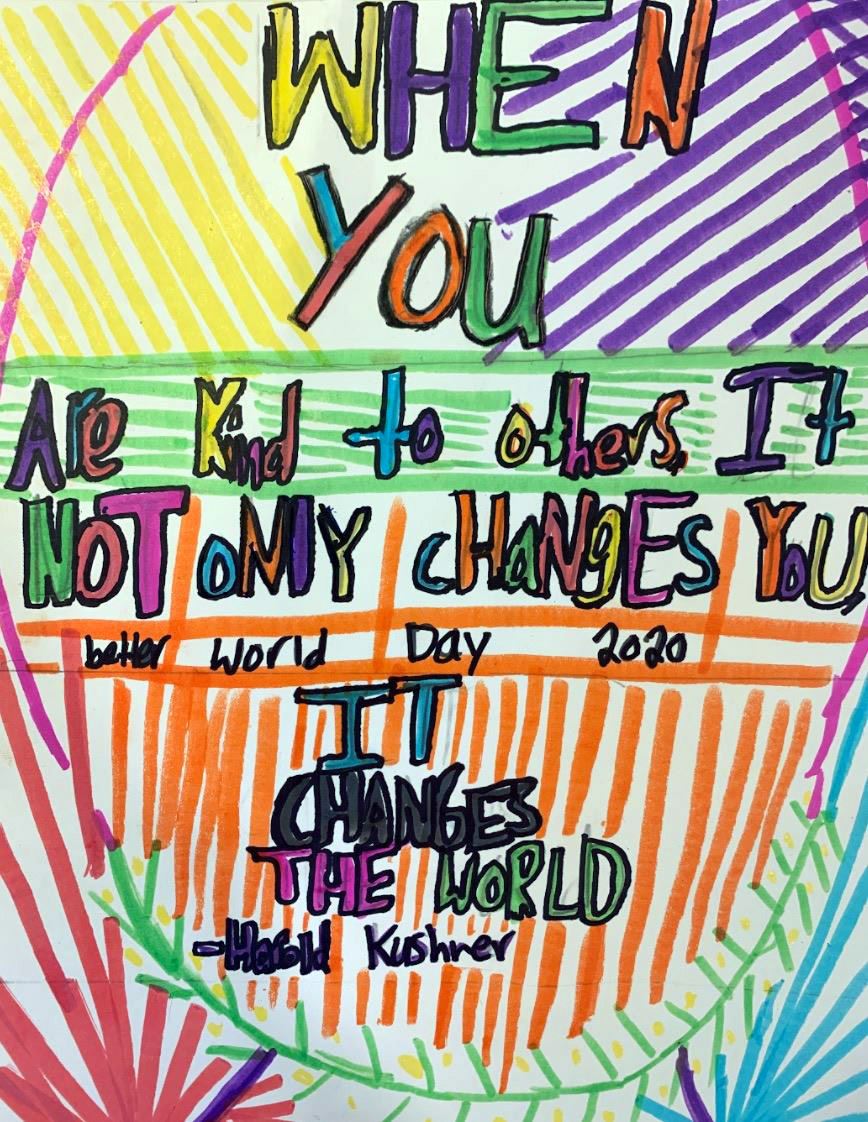 WHEN
YOU
Are Kind to others, It
NOT ONlY CHaNgEs YoU,
better World Day 2020
IT
CHANGES
THE WORLD
-Harold Kushner